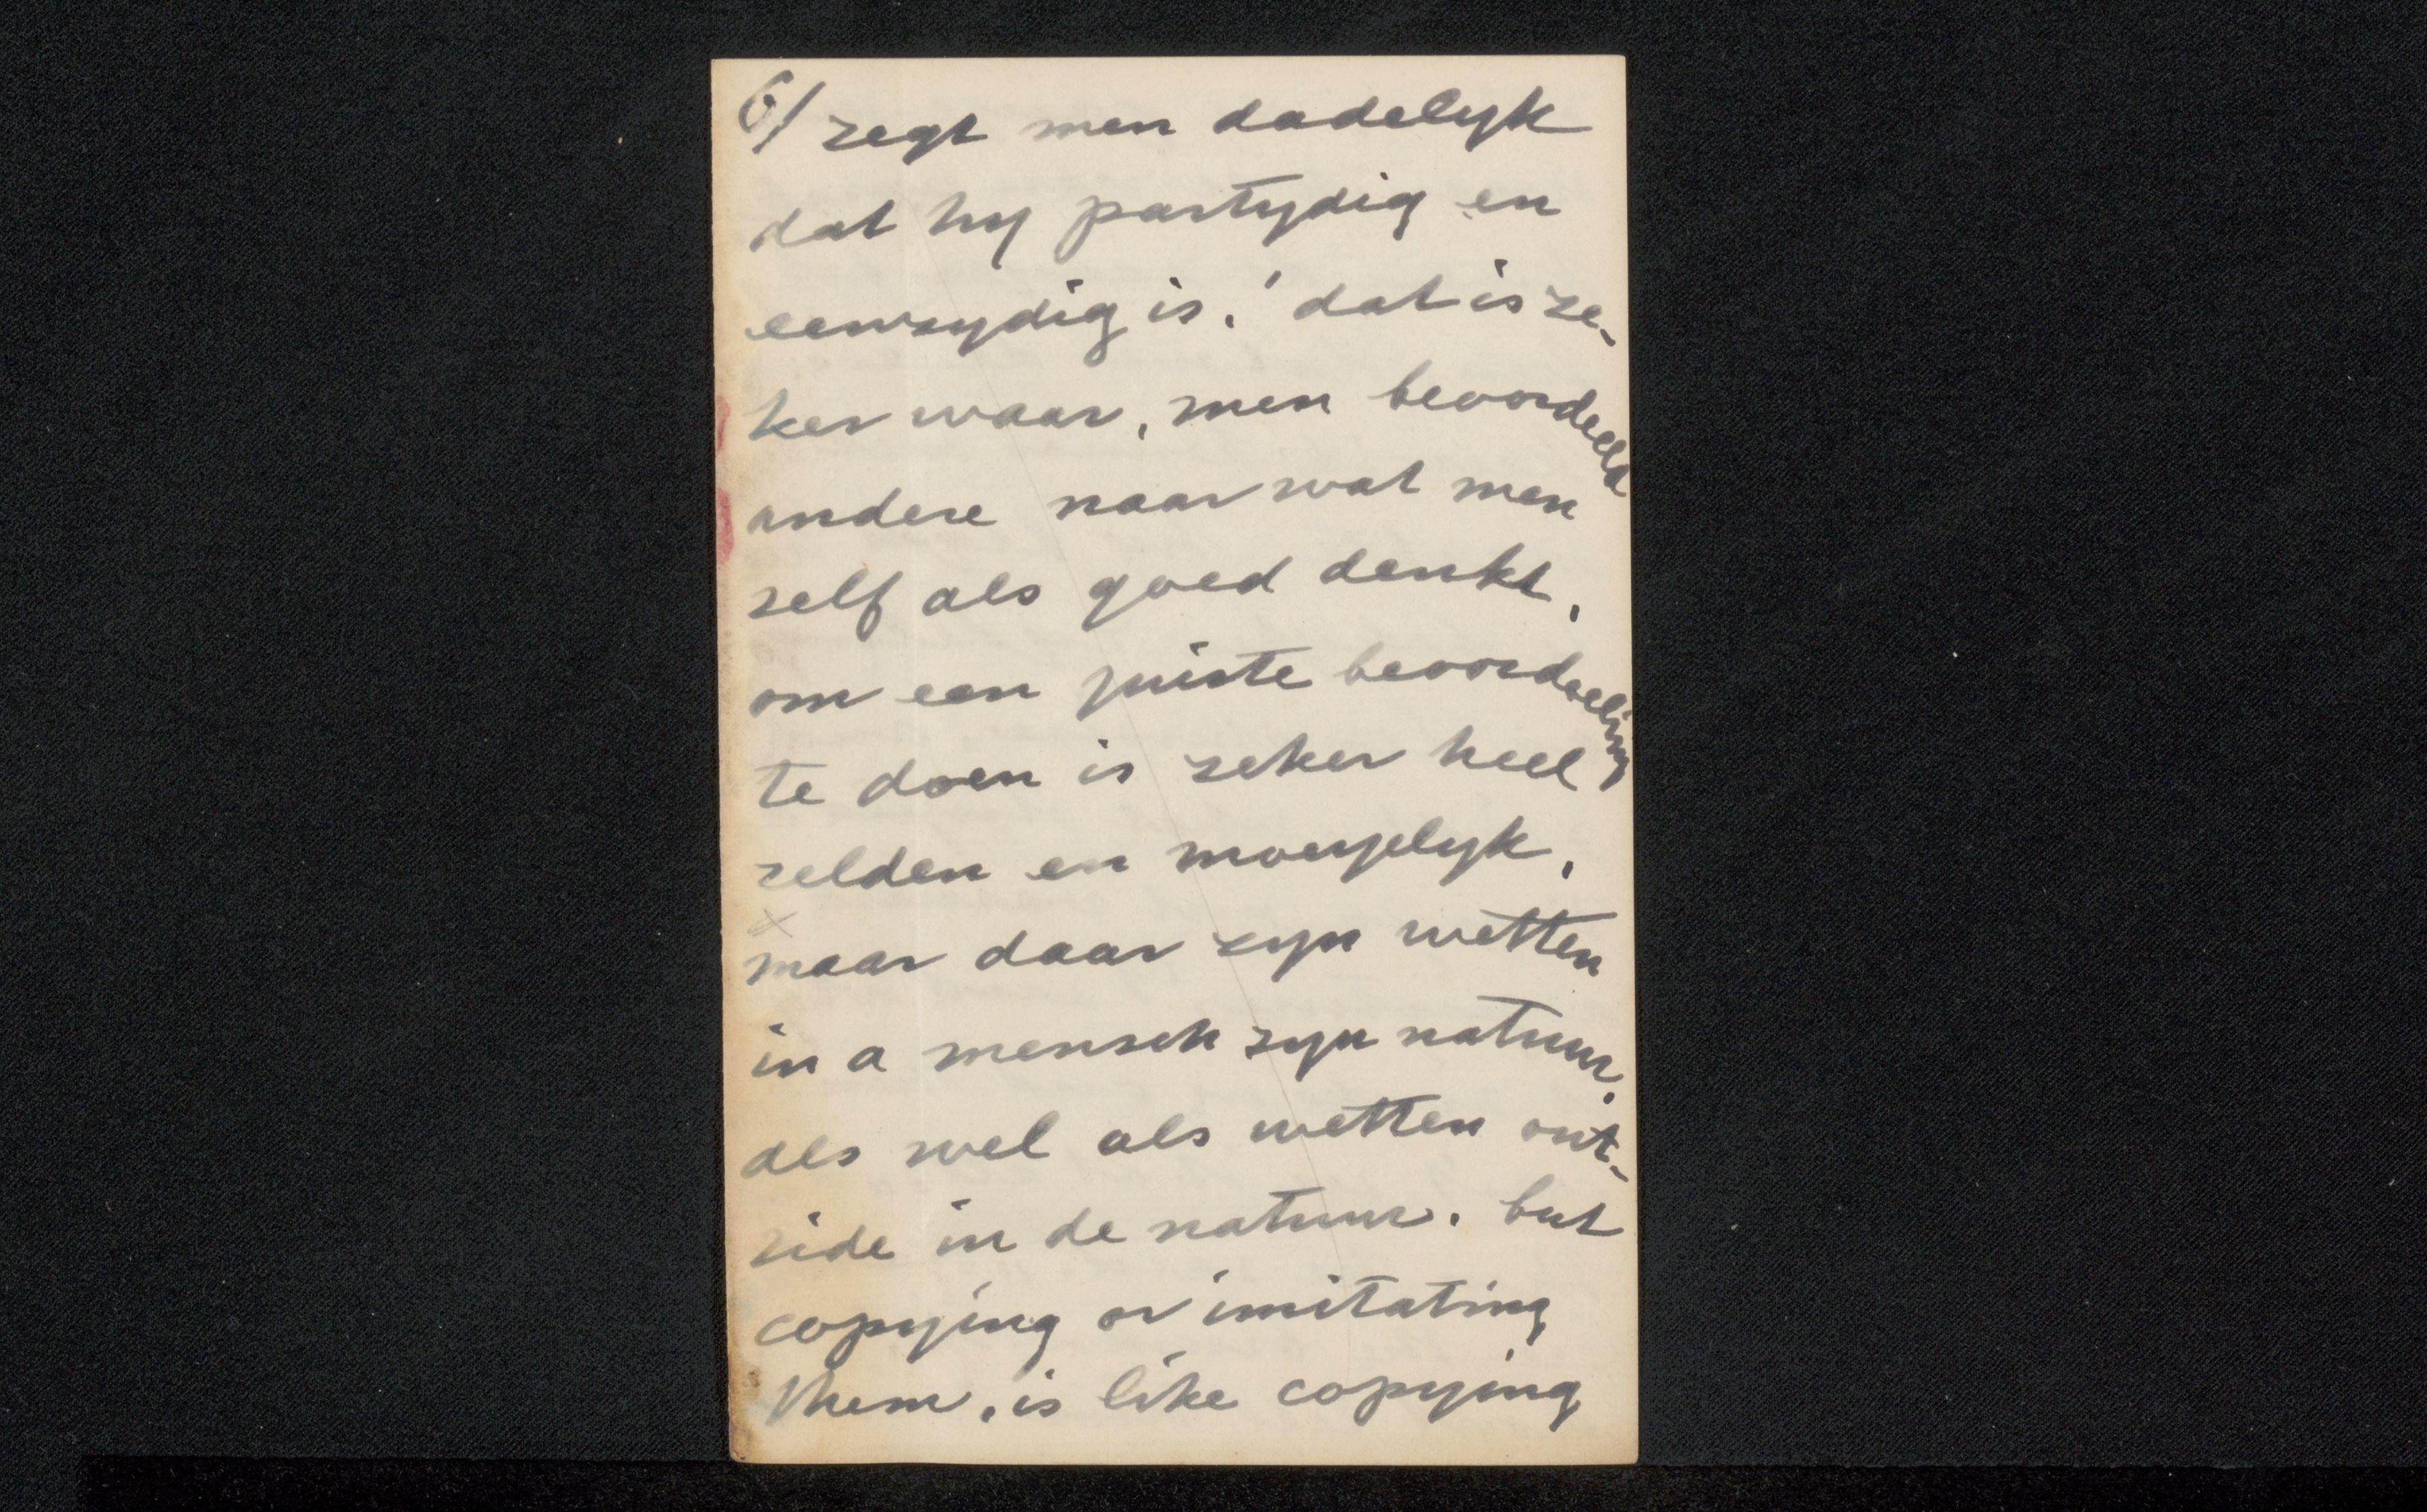 6/ zegt men dadelyk
dat hy partydig en
eenzydig is! dat is ze-
ker waar, men beoordeeld
andere naar wat men
self als goed denkt,
om een juiste beoordeeling
te doen is zeker heel
zelden en moeyelyk,
x
maar daar zyn wetten
in a mensch zyn natuur,
als wel als wetten out-
side in de natuur. but
copying or imitating
them, is like copying